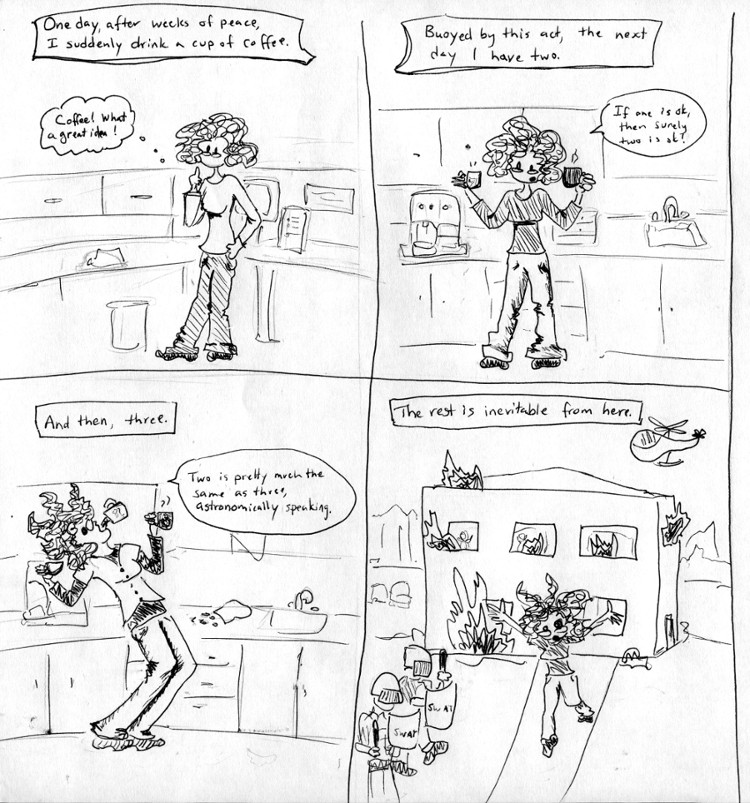 One day, after weeks of peace,
I suddenly drink a cup of coffee.
Coffee! What
a great idea!
Buoyed by this act, the next
day I have two.
If one is ok,
then surely
two is ok!
And then, three.
Two is pretty much the
same as three,
astronomically speaking.
The rest is inevitable from here.
SWAT
SWAT